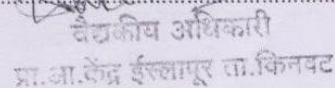 वैद्यकीय अधिकारी
प्रा.आ.केंद्र ईस्लापूर ता.किनवट